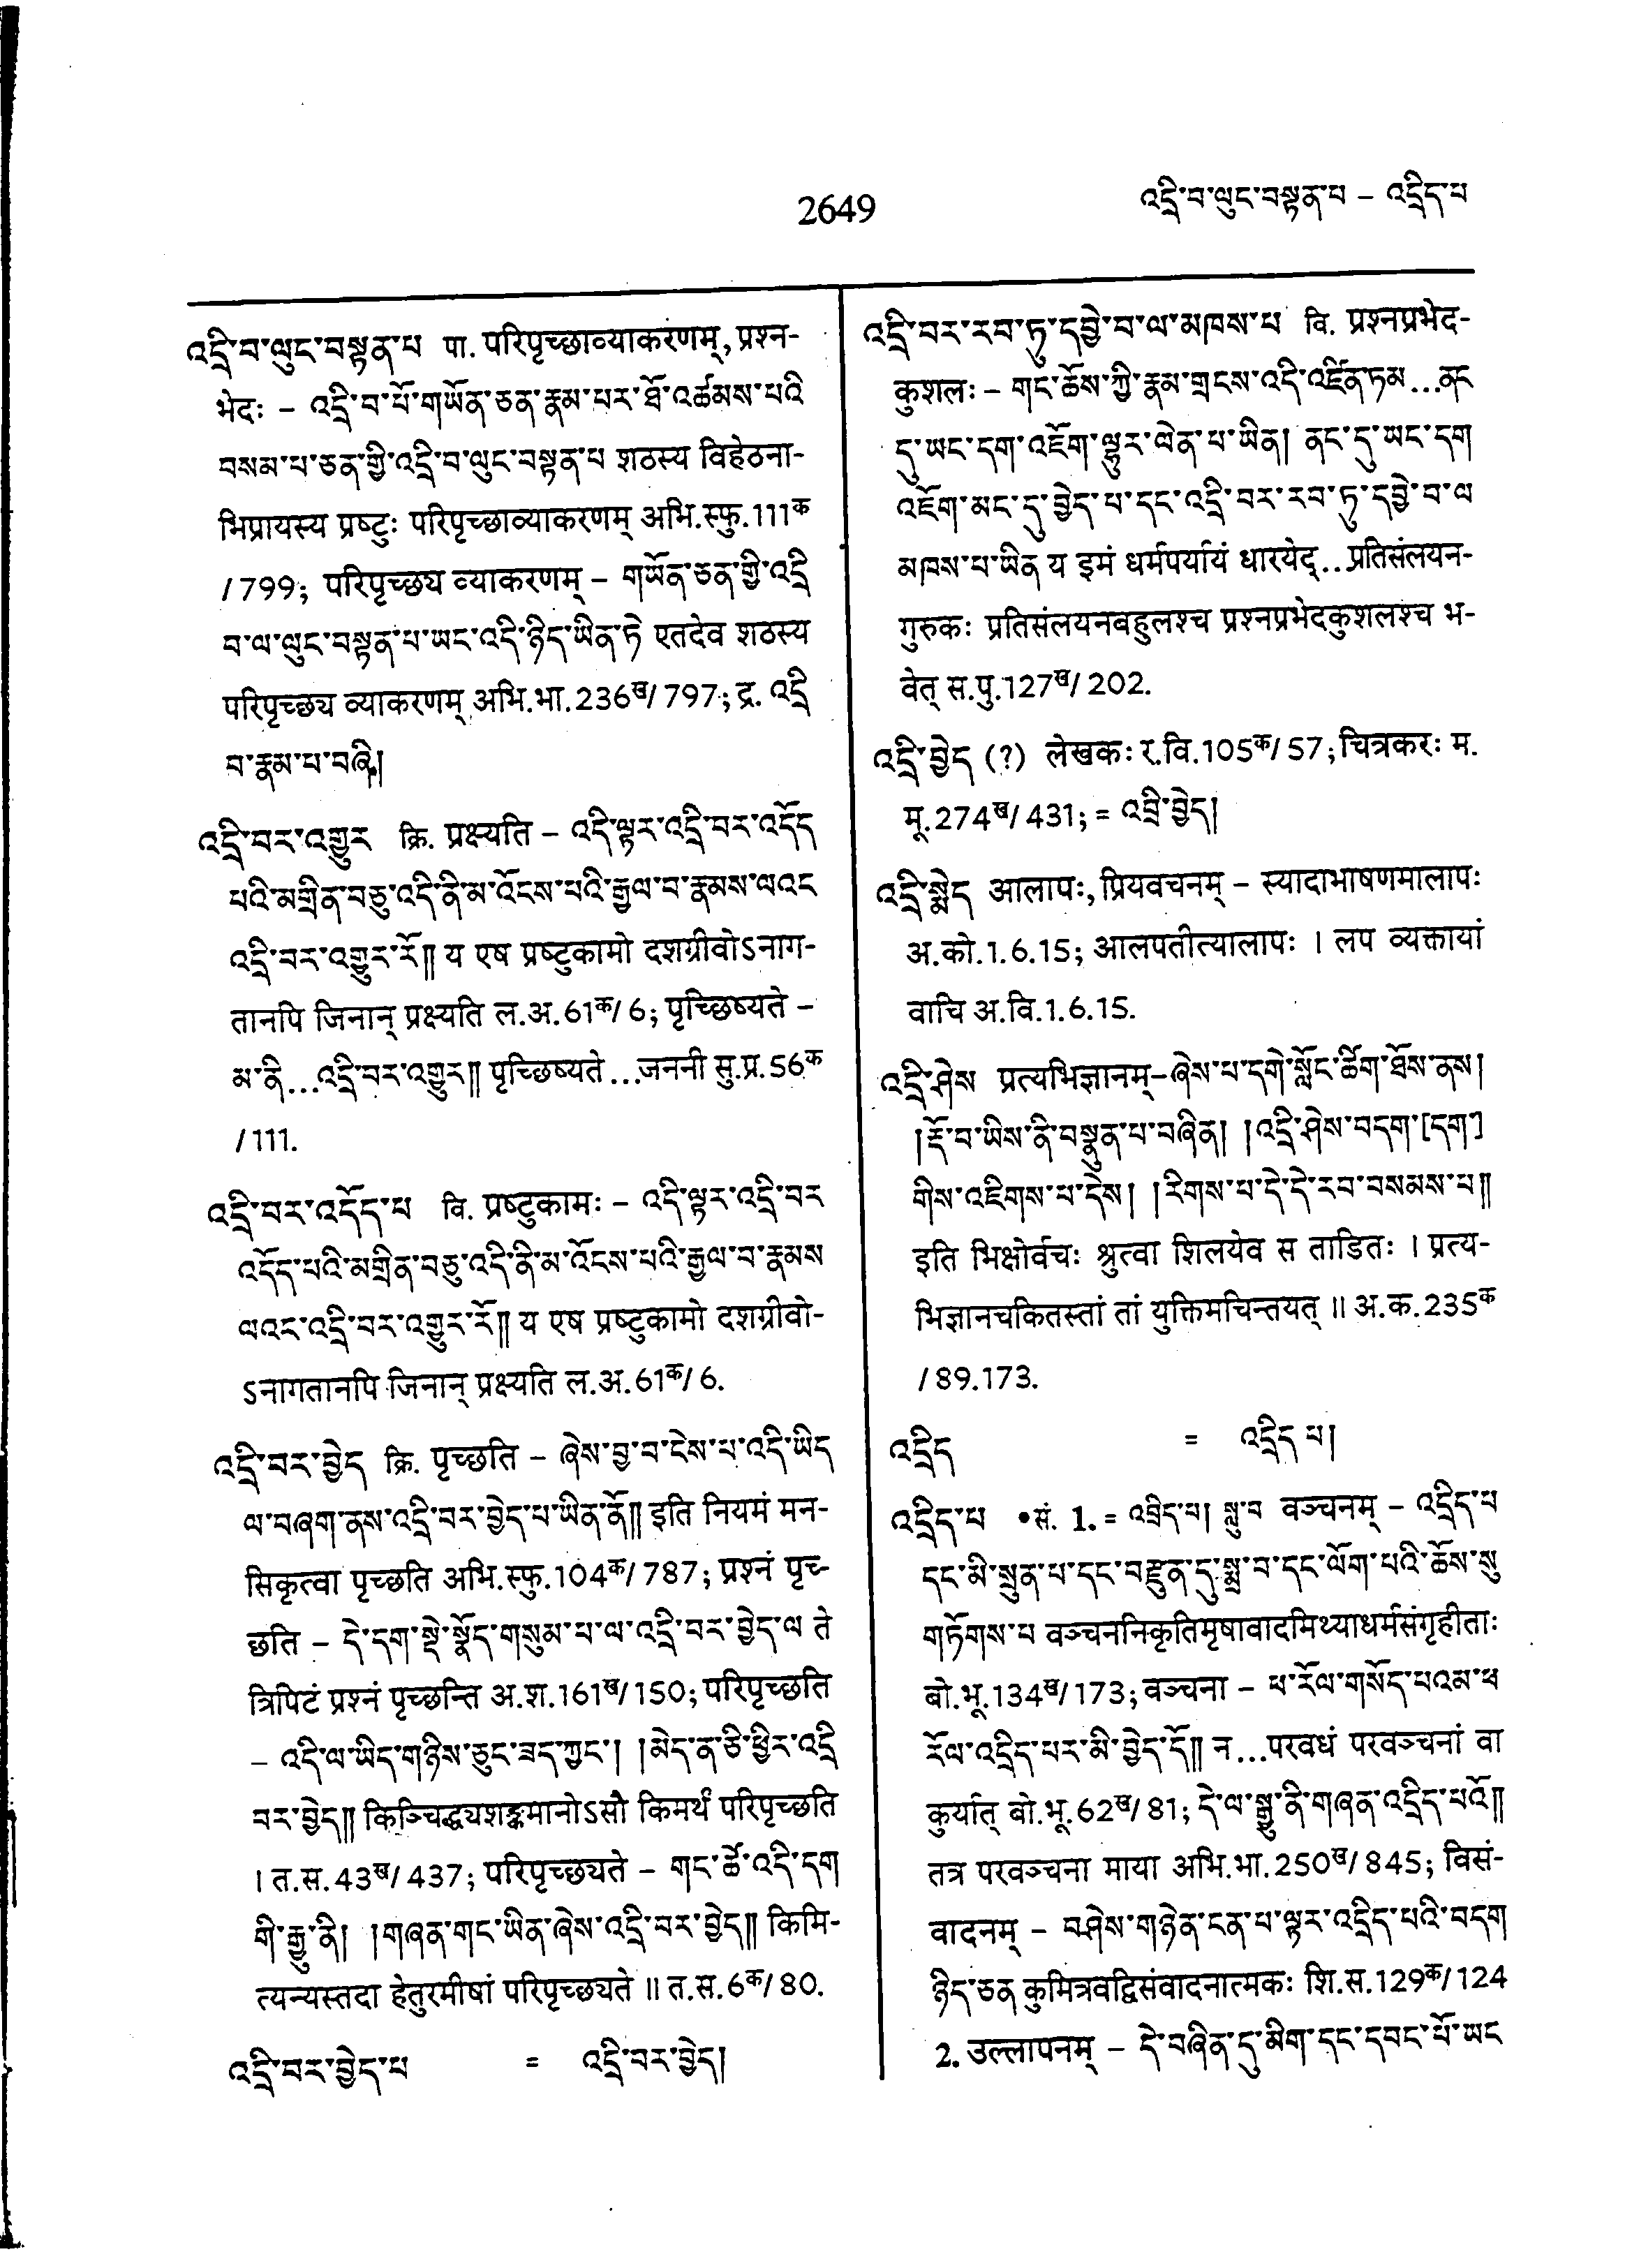 2649
འདྲི་བ་ལུང་བསྟན་པ – འདྲིད་པ
འདྲི་བ་ལུང་བསྟན་པ पा. परिपृच्छाव्याकरणम्, प्रश्न-
भेदः – འདྲི་བ་པོ་གཡོན་ཅན་རྣམ་པར་ཐོ་འཚམས་པའི
བསམ་པ་ཅན་གྱི་འདྲི་བ་ལུང་བསྟན་པ शठस्य विहेठना-
भिप्रायस्य प्रष्टुः परिपृच्छाव्याकरणम् अभि.स्फु.111क
/799; परिपृच्छ्य व्याकरणम् – གཡོན་ཅན་གྱི་འདྲི
བ་ལ་ལུང་བསྟན་པ་ཡང་འདི་ཉིད་ཡིན་ཏེ एतदेव शठस्य
परिपृच्छ्य व्याकरणम् अभि.भा.236ख/797; द्र. འདྲི
བ་རྣམ་པ་བཞི།
འདྲི་བར་འགྱུར क्रि. प्रक्ष्यति – འདི་ལྟར་འདྲི་བར་འདོད
པའི་མགྲིན་བཅུ་འདི་ནི་མ་འོངས་པའི་རྒྱལ་བ་རྣམས་ལའང
འདྲི་བར་འགྱུར་རོ༎ य एष प्रष्टुकामो दशग्रीवोऽनाग-
तानपि जिनान् प्रक्ष्यति ल.अ.61क/6; पृच्छिष्यते –
མ་ནི...འདྲི་བར་འགྱུར༎ पृच्छिष्यते...जननी सु.प्र.56क
/111.
འདྲི་བར་འདོད་པ वि. प्रष्टुकामः – འདི་ལྟར་འདྲི་བར
འདོད་པའི་མགྲིན་བཅུ་འདི་ནི་མ་འོངས་པའི་རྒྱལ་བ་རྣམས
ལའང་འདྲི་བར་འགྱུར་རོ༎ य एष प्रष्टुकामो दशग्रीवो-
ऽनागतानपि जिनान् प्रक्ष्यति ल.अ.61क/6.
འདྲི་བར་བྱེད क्रि. पृच्छति – ཞེས་བྱ་བ་ངེས་པ་འདི་ཡིད
ལ་བཞག་ནས་འདྲི་བར་བྱེད་པ་ཡིན་ནོ༎ इति नियमं मन-
सिकृत्वा पृच्छति अभि.स्फु.104क/787; प्रश्नं पृच्-
छति – དེ་དག་སྡེ་སྣོད་གསུམ་པ་ལ་འདྲི་བར་བྱེད་ལ ते
त्रिपिटं प्रश्नं पृच्छन्ति अ.श.161ख/150; परिपृच्छति
– འདི་ལ་ཡིད་གཉིས་ཅུང་ཟད་ཀྱང་། །མེད་ན་ཅི་ཕྱིར་འདྲི
བར་བྱེད༎ किञ्चिद्ध्यशङ्कमानोऽसौ किमर्थं परिपृच्छति
। त.स.43ख/437; परिपृच्छ्यते – གང་ཚེ་འདི་དག
གི་རྒྱུ་ནི། །གཞན་གང་ཡིན་ཞེས་འདྲི་བར་བྱེད༎ किमि-
त्यन्यस्तदा हेतुरमीषां परिपृच्छ्यते ॥ त.स.6क/80.
འདྲི་བར་བྱེད་པ = འདྲི་བར་བྱེད།
འདྲི་བར་རབ་ཏུ་དབྱེ་བ་ལ་མཁས་པ वि. प्रश्नप्रभेद-
कुशलः – གང་ཆོས་ཀྱི་རྣམ་གྲངས་འདི་འཛིན་ཏམ...ནང
དུ་ཡང་དག་འཇོག་ལྷུར་ལེན་པ་ཡིན། ནང་དུ་ཡང་དག
འཇོག་མང་དུ་བྱེད་པ་དང་འདྲི་བར་རབ་ཏུ་དབྱེ་བ་ལ
མཁས་པ་ཡིན य इमं धर्मपर्यायं धारयेद्...प्रतिसंलयन-
गुरुकः प्रतिसंलयनबहुलश्च प्रश्नप्रभेदकुशलश्च भ-
वेत् स.पु.127ख/202.
འདྲི་བྱེད (?) लेखकः र.वि.105क/57; चित्रकरः म.
मू.274ख/431; = འབྲི་བྱེད།
འདྲི་སྨེད आलापः, प्रियवचनम् – स्यादाभाषणमालापः
अ.को.1.6.15; आलपतीत्यालापः । लप व्यक्तायां
वाचि अ.वि.1.6.15.
འདྲི་ཤེས प्रत्यभिज्ञानम्–ཞེས་པ་དགེ་སློང་ཚིག་ཐོས་ནས།
།རྡོ་བ་ཡིས་ནི་བསྣུན་པ་བཞིན། །འདྲི་ཤེས་བདག་[དག་]
གིས་འཇིགས་པ་དེས། །རིགས་པ་དེ་དེ་རབ་བསམས་པ༎
इति भिक्षोर्वचः श्रुत्वा शिलयेव स ताडितः । प्रत्य-
भिज्ञानचकितस्तां तां युक्तिमचिन्तयत् ॥ अ.क.235क
/89.173.
འདྲིད = འདྲིད་པ།
འདྲིད་པ •सं. 1. = འབྲིད་པ། སླུ་བ वञ्चनम् – འདྲིད་པ
དང་མི་སྲུན་པ་དང་བརྫུན་དུ་སྨྲ་བ་དང་ལོག་པའི་ཆོས་སུ
གཏོགས་པ वञ्चननिकृतिमृषावादमिथ्याधर्मसंगृहीताः
बो.भू.134ख/173; वञ्चना – ཕ་རོལ་གསོད་པའམ་ཕ
རོལ་འདྲིད་པར་མི་བྱེད་དོ༎ न...परवधं परवञ्चनां वा
कुर्यात् बो.भू.62ख/81; དེ་ལ་སྒྱུ་ནི་གཞན་འདྲིད་པའོ༎
तत्र परवञ्चना माया अभि.भा.250ख/845; विसं-
वादनम् – བཤེས་གཉེན་ངན་པ་ལྟར་འདྲིད་པའི་བདག
ཉིད་ཅན कुमित्रवद्विसंवादनात्मकः शि.स.129क/124
2. उल्लापनम् – དེ་བཞིན་དུ་མིག་དང་དབང་པོ་ཡང